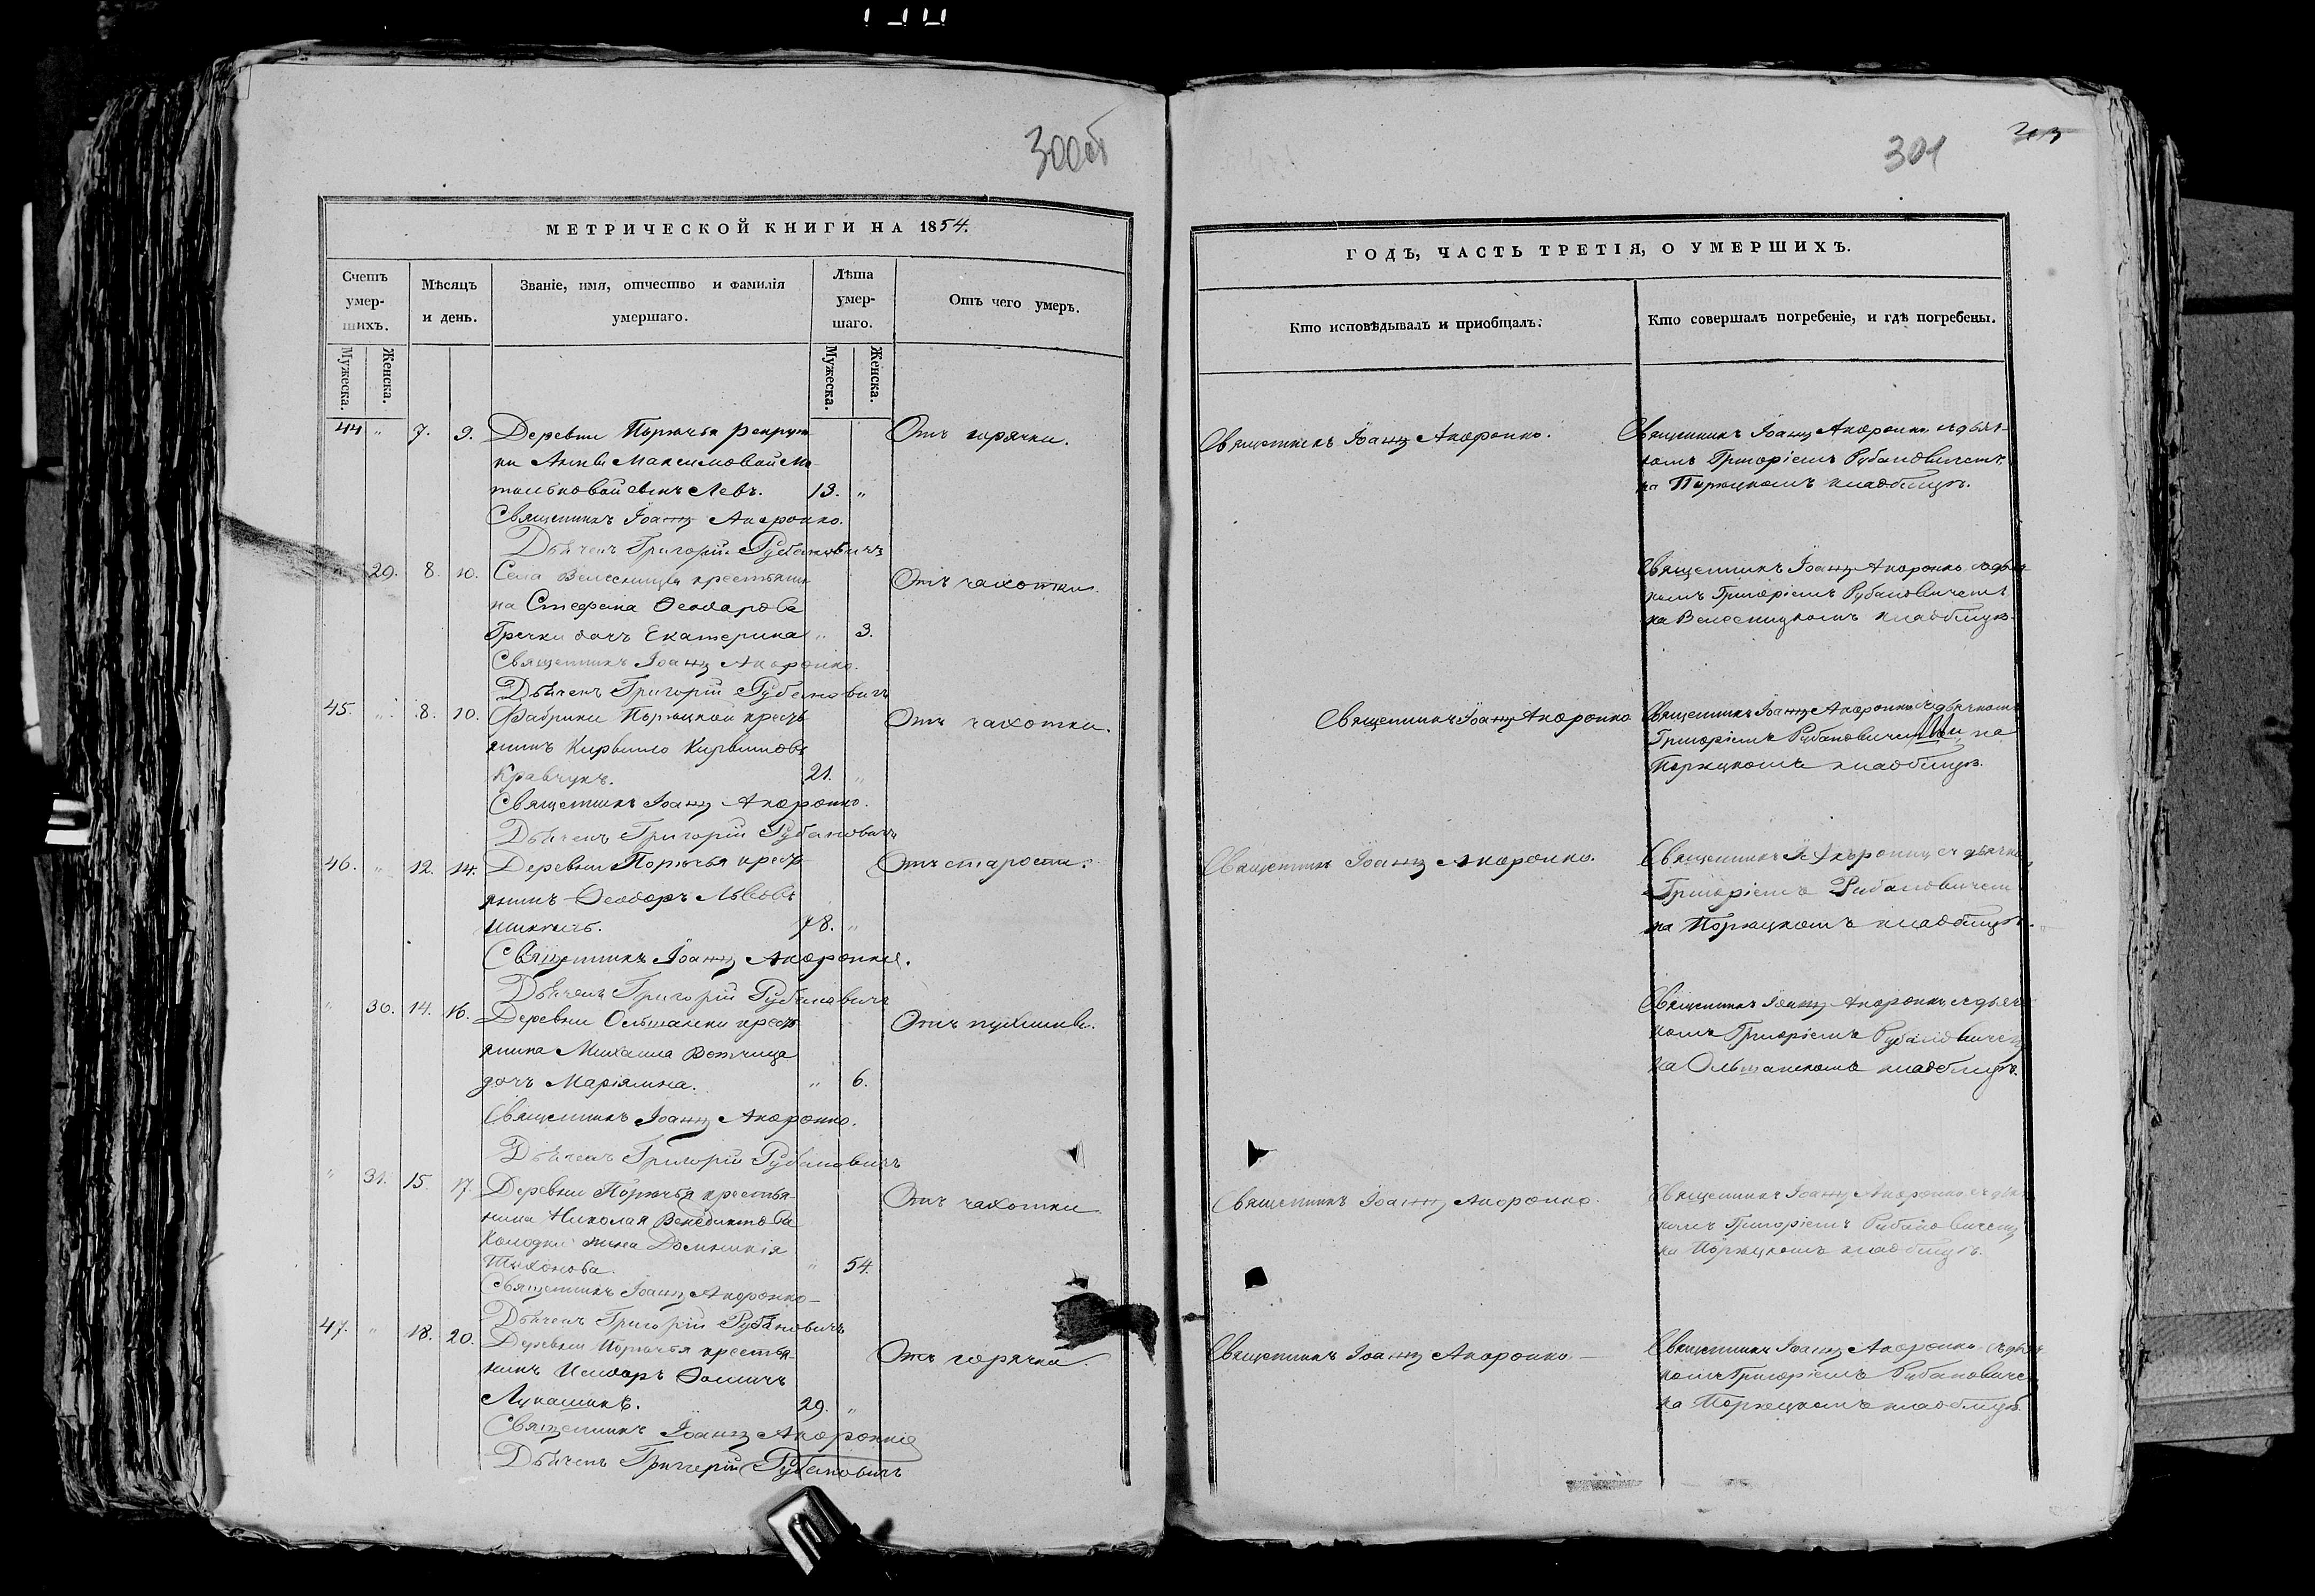 300об
МЕТРИЧЕСКОЙ КНИГИ НА 1854.
Счетъ умер-шихъ.
Мѣсяцъ и день.
Званіе, имя, отчество и фамилія умершаго.
Лѣта умер-шаго.
Отъ чего умеръ.
Мужеска.
Женска.
Мужеска.
Женска.
44 " 7. 9. Деревни Порѣчья рекрут- Отъ горячки.
ки Анны Максимовой
сынъ Левъ. 13. "
Священникъ Іоаннъ Акоронко.
Дьячекъ Григорій Рубановичъ
" 29. 8. 10. Села Велесницы крестьяни- Отъ чахотки.
на Стефана Ѳеодорова
Гречки дочь Екатерина " 3.
Священникъ Іоаннъ Акоронко.
Дьячекъ Григорій Рубановичъ
45. " 8. 10. Фабрики Порѣцкой кресть- Отъ чахотки.
янинъ Кирилло Кирилловъ
Кравчукъ. 21. "
Священникъ Іоаннъ Акоронко.
Дьячекъ Григорій Рубановичъ
46. " 12. 14. Деревни Порѣчья кресть- Отъ старости.
янинъ Ѳеодоръ Львовъ
78. "
Священникъ Іоаннъ Акоронко.
Дьячекъ Григорій Рубановичъ
" 30. 14. 16. Деревни Ольшанки кресть-
янина Михаила
дочь Маріямна. " 6.
Священникъ Іоаннъ Акоронко.
Дьячекъ Григорій Рубановичъ
" 31. 15. 17. Деревни Порѣчья крестья- Отъ чахотки
нина Николая Венедиктова
Колодки жена Доминикія
Тихонова. " 54.
Священникъ Іоаннъ Акоронко
Дьячекъ Григорій Рубановичъ
47. " 18. 20. Деревни Порѣчья крестья- Отъ горячки.
нинъ Исидоръ Ѳоминъ
Лукашикъ. 29. "
Священникъ Іоаннъ Акоронко
Дьячекъ Григорій Рубановичъ
301
ГОДЪ, ЧАСТЬ ТРЕТІЯ, О УМЕРШИХЪ.
Кто исповѣдывалъ и приобщалъ.
Кто совершалъ погребеніе, и гдѣ погребены.
Священникъ Іоаннъ Акоронко.
Священникъ Іоаннъ Акоронко съ дьяч-
комъ Григоріемъ Рубановичемъ
на Порѣцкомъ кладбищѣ.
Священникъ Іоаннъ Акоронко съ дьяч-
комъ Григоріемъ Рубановичемъ
на Велесницкомъ кладбищѣ.
Священникъ Іоаннъ Акоронко
Священникъ Іоаннъ Акоронко съ дьячкомъ
Григоріемъ Рубановичемъ на
Порѣцкомъ кладбищѣ.
Священникъ Іоаннъ Акоронко.
Священникъ І. Акоронко съ дьячкомъ
Григоріемъ Рубановичемъ
на Порѣцкомъ кладбищѣ.
Священникъ Іоаннъ Акоронко съ дьяч-
комъ Григоріемъ Рубановичемъ
на Ольшанскомъ кладбищѣ.
Священникъ Іоаннъ Акоронко.
Священникъ Іоаннъ Акоронко съ дьяч-
комъ Григоріемъ Рубановичемъ
на Порѣцкомъ кладбищѣ.
Священникъ Іоаннъ Акоронко
Священникъ Іоаннъ Акоронко съ дьяч-
комъ Григоріемъ Рубановичемъ
на Порѣцкомъ кладбищѣ